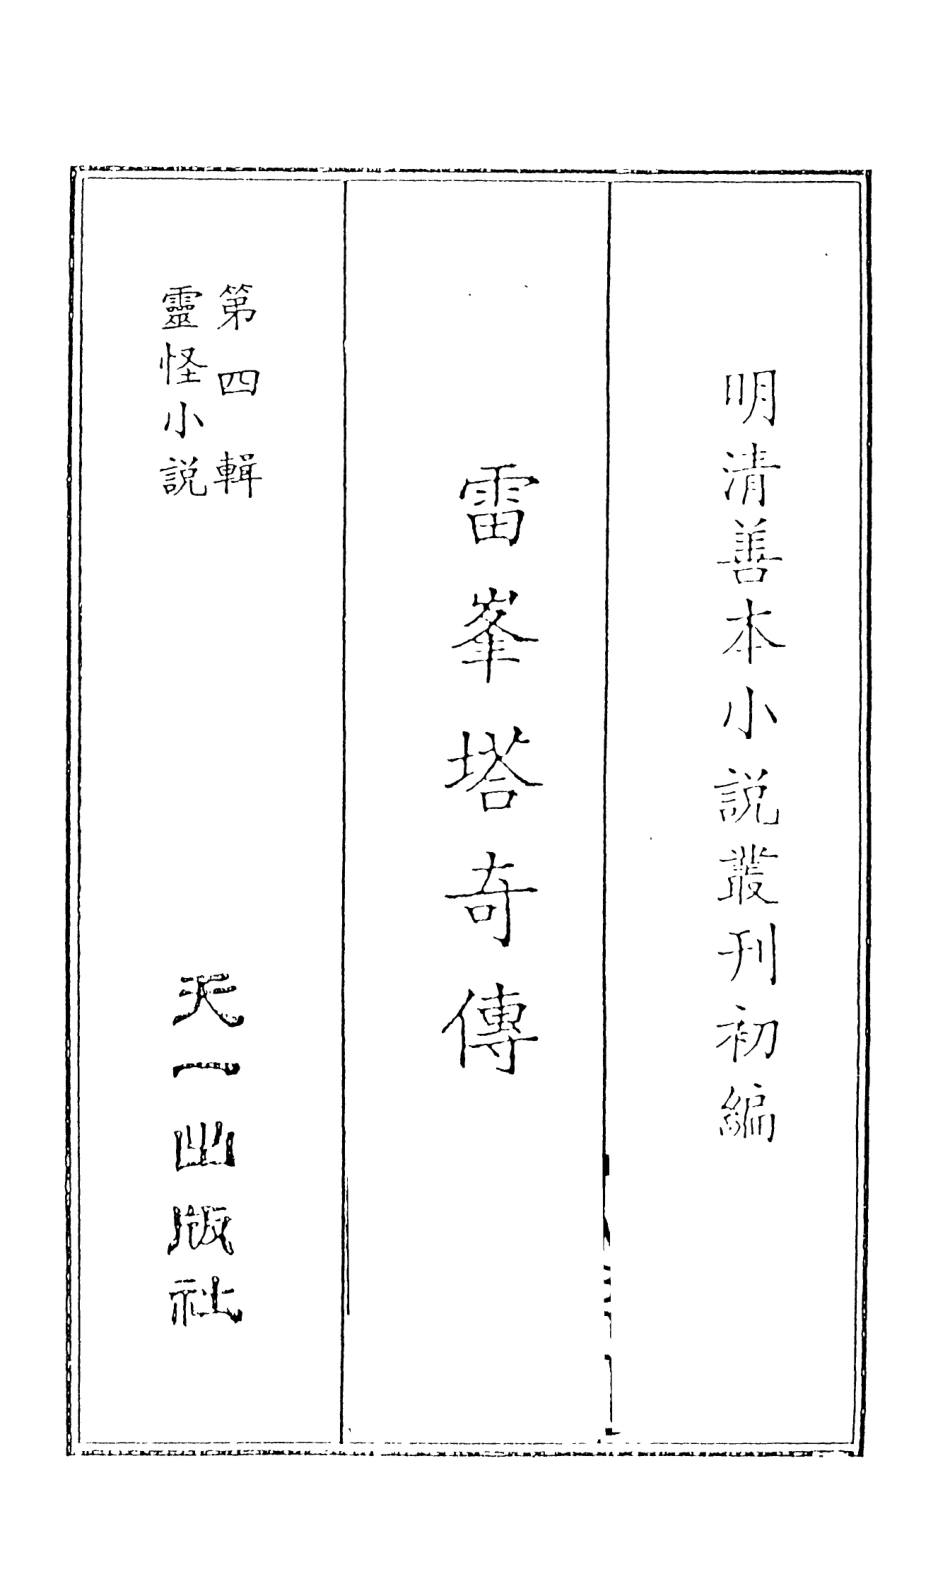 明清善本小説叢刊初編
雷峯塔奇傳
第四輯
靈怪小説
天一出版社